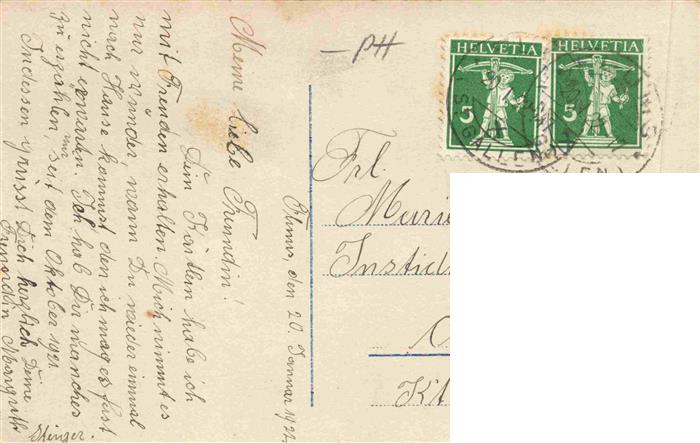 Flums, den 20. Januar 1922.
Meine liebe Freundin!
Dein Kärtlein habe ich
mit Freuden erhalten. Mich nimmt es
nur wunder wann Du wieder einmal
nach Hause kommst den ich mag es fast
nicht erwarten. Ich hab Dir manches
zu erzählen nur seit dem Oktober 1921.
Indessen grüsst Dich herzlich Deine
Freundin Margrith
– PH
HELVETIA
5
HELVETIA
5
ST. GALLEN
Frl.
Kt